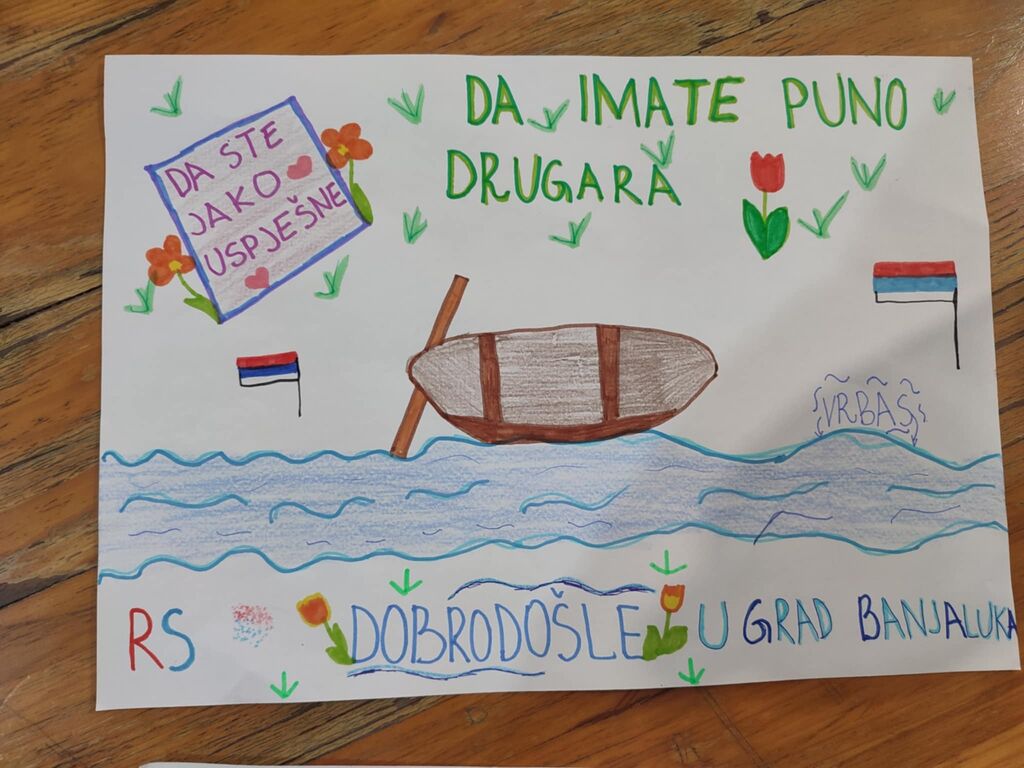 DA STE
JAKO
USPJEŠNE
DA IMATE PUNO
DRUGARA
VRBAS
RS DOBRODOŠLE U GRAD BANJALUKA